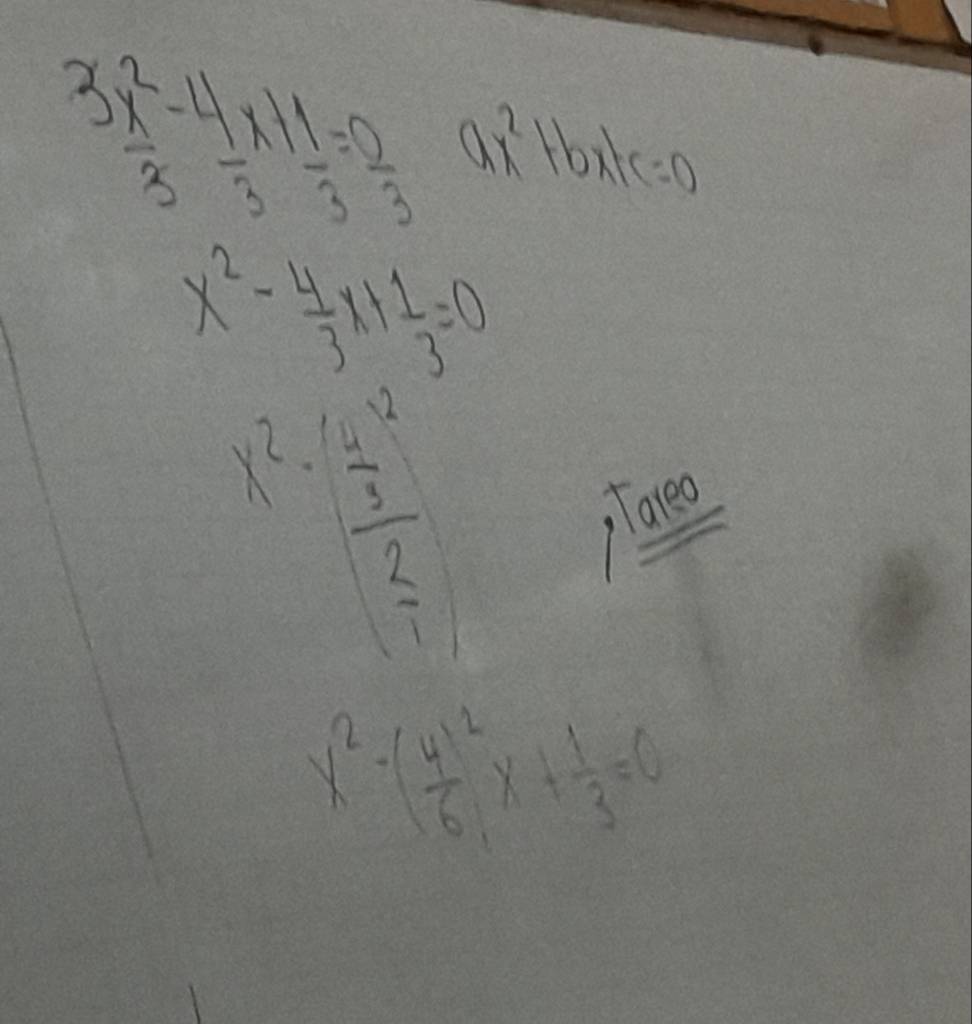 3x²/3 - 4/3 x + 1/3 = 0/3 ax² + bx + c = 0
x² - 4/3 x + 1/3 = 0
x² - (4/3 / 2/1)²
¡Tarea
x² - (4/6)² x + 1/3 = 0